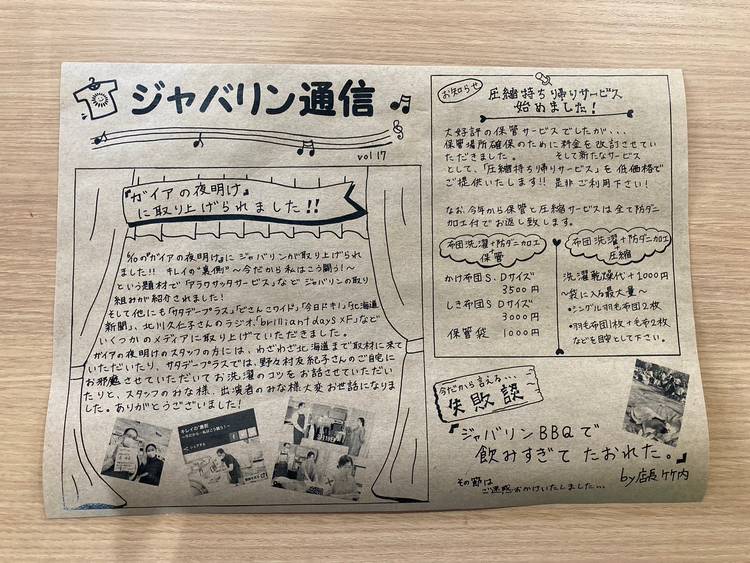 ジャバリン通信
vol 17
『ガイアの夜明け』
に取り上げられました!!
5/10の『ガイアの夜明け』に ジャバリンが取り上げられ
ました!! キレイの"裏側"～今だから私はこう闘う!～
という題材で「アラウサッタサービス」など ジャバリンの取り
組みが紹介されました!
そして他にも「サタデープラス」「どさんこワイド」「今日ドキ!」「北海道
新聞」、北川久仁子さんのラジオ「brilliant days×F」など
いくつかのメディアに取り上げていただきました。
ガイアの夜明けのスタッフの方には、わざわざ北海道まで取材に来て
いただいたり、サタデープラスでは、野々村友紀子さんのご自宅に
お邪魔させていただいてお洗濯のコツをお話させていただい
たりと、スタッフのみな様、出演者のみな様大変お世話になりま
した。ありがとうございました!
キレイの"裏側"
～今だから 私はこう闘う!～
お知らせ
圧縮持ち帰りサービス
始めました!
大好評の保管サービスでしたが、、、
保管場所確保のために料金を改訂させてい
ただきました。 そして新たなサービス
として、「圧縮持ち帰りサービス」を低価格で
ご提供いたします!! 是非ご利用下さい!
なお、今年から保管と圧縮サービスは全て防ダニ
加工付でお返し致します。
布団洗濯+防ダニ加工
+
保管
かけ布団S、Dサイズ
3500円
しき布団S、Dサイズ
3000円
保管袋 1000円
布団洗濯+防ダニ加工
+
圧縮
洗濯乾燥代+1000円
～袋に入る最大量～
・シングル羽毛布団2枚
・羽毛布団1枚+毛布2枚
などを目安として下さい。
今だから言える...
失敗談
『ジャバリンBBQで
飲みすぎて たおれた。』
by店長竹内
その節は
ご迷惑おかけいたしました...